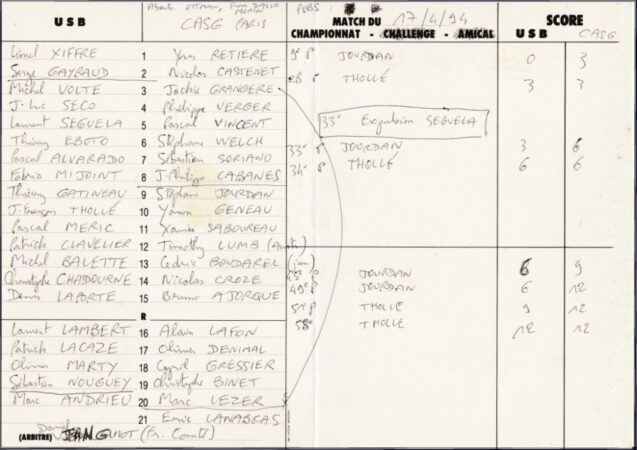 U S B
CASG PARIS
PUBS
MATCH DU 17/4/94
CHAMPIONNAT - CHALLENGE - AMICAL
SCORE
U S B CASG
Lionel XIFFRE 1 Yves RETIERE 9e P JOURDAN 0 3
Serge GAYRAUD 2 Nicolas CASTENET P THOLLÉ 3 3
Michel VOLTE 3 Jackie GRANGERE
J. Luc SECO 4 Philippe VERGER
Laurent SEGUELA 5 Pascal VINCENT 33° Expulsion SEGUELA
Thierry EBOTO 6 Stéphane WELCH 33° P JOURDAN 3 6
Pascal ALVARADO 7 Sébastien SORIANO 34° P THOLLÉ 6 6
Fabrice MIJOINT 8 J. Philippe CABANES
Thierry GATINEAU 9 Stéphane JOURDAN
J. François THOLLÉ 10 Yann GENEAU
Pascal MERIC 11 Xavier SABOUREAU
Patrick CLAVELIER 12 Timothy LUMB (Austr)
Michel BALETTE 13 Cedric BOUDAREL P JOURDAN 6 9
Christophe CHABOURNE 14 Nicolas CROZE 49° P JOURDAN 6 12
Denis LAPORTE 15 Bruno AJORQUE 51° P THOLLE 9 12
R 58° THOLLE 12 12
Laurent LAMBERT 16 Alain LAFON
Patrick LACAZE 17 Olivier DENIMAL
Olivier MARTY 18 Cyril GRESSIER
Sébastien NOUGUEY 19 Christophe BINET
Marc ANDRIEU 20 Marc LEZER
21 Eric LANABRAS
Daniel
(ARBITRE)